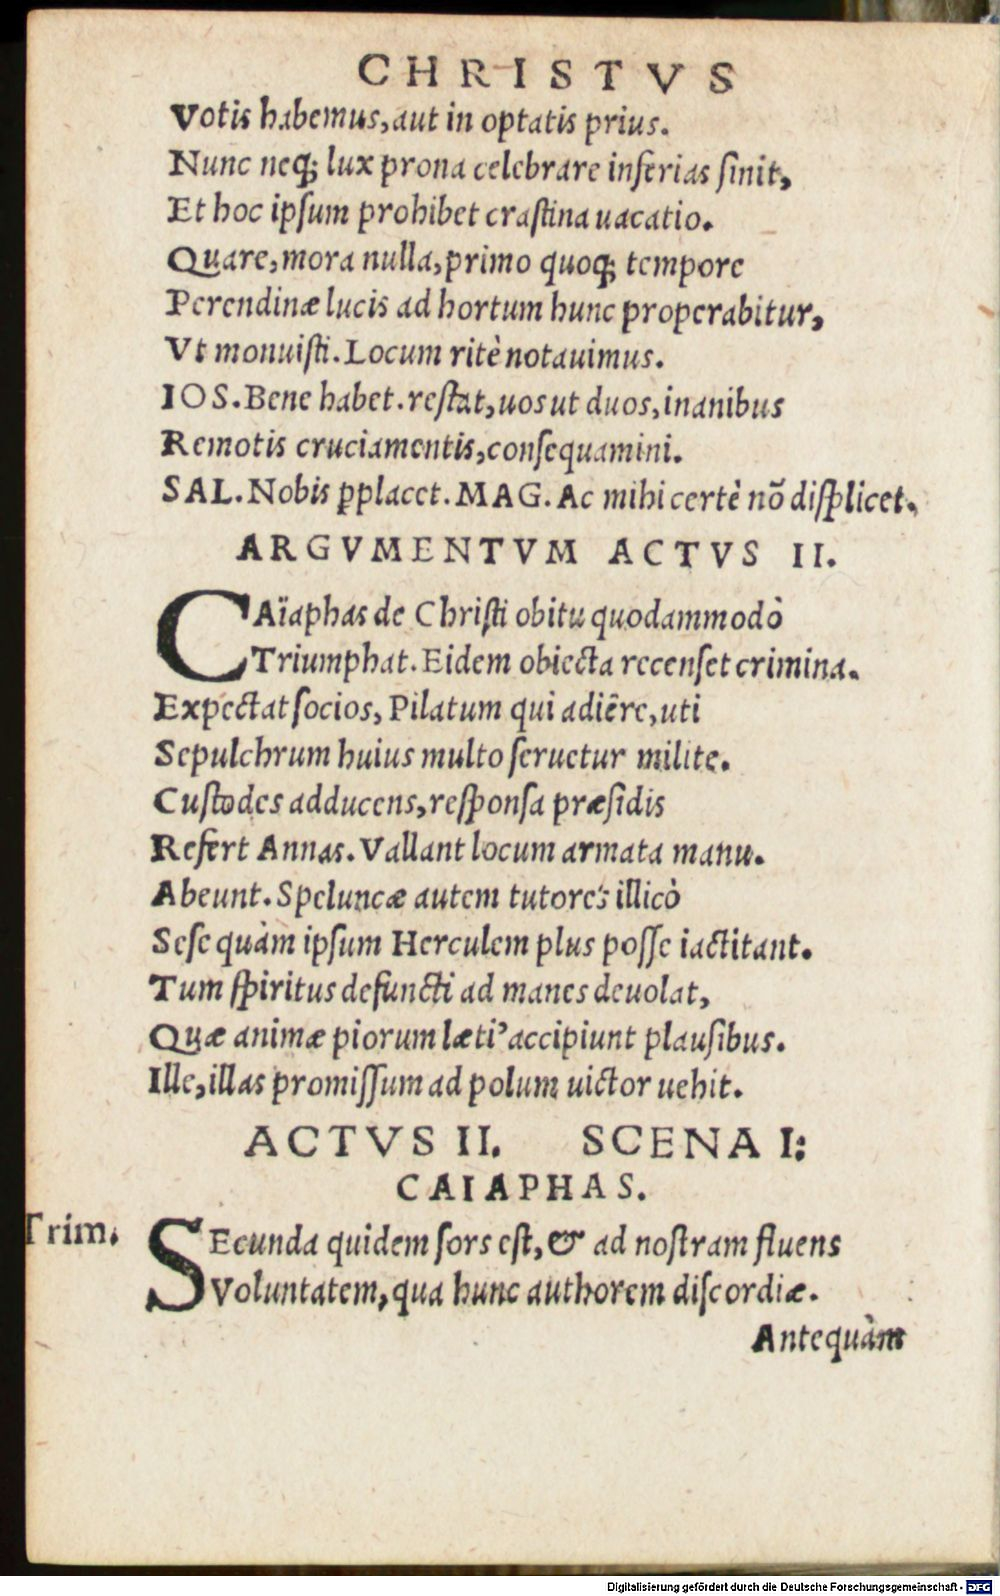 CHRISTVS
Votis habemus, aut in optatis prius.
Nunc neq; lux prona celebrare inferias ſinit,
Et hoc ipſum prohibet craſtina uacatio.
Quare, mora nulla, primo quoq; tempore
Perendinæ lucis ad hortum hunc properabitur,
Vt monuiſti. Locum ritè notauimus.
IOS. Bene habet. reſtat, uos ut duos, inanibus
Remotis cruciamentis, conſequamini.
SAL. Nobis ꝑplacet. MAG. Ac mihi certè nō diſplicet.
ARGVMENTVM ACTVS II.
CAïaphas de Chriſti obitu quodammodò
Triumphat. Eidem obiecta recenſet crimina.
Expectat ſocios, Pilatum qui adiêre, uti
Sepulchrum huius multo ſeruetur milite.
Cuſtodes adducens, reſponſa præſidis
Refert Annas. Vallant locum armata manu.
Abeunt. Speluncæ autem tutores illicò
Seſe quàm ipſum Herculem plus poſſe iactitant.
Tum ſpiritus defuncti ad manes deuolat,
Quæ animæ piorum læti' accipiunt plauſibus.
Ille, illas promiſſum ad polum uictor uehit.
ACTVS II. SCENA I:
CAIAPHAS.
Trim.
SEcunda quidem ſors eſt, & ad noſtram fluens
Voluntatem, qua hunc authorem diſcordiæ.
Antequàm
Digitalisierung gefördert durch die Deutsche Forschungsgemeinschaft - DFG